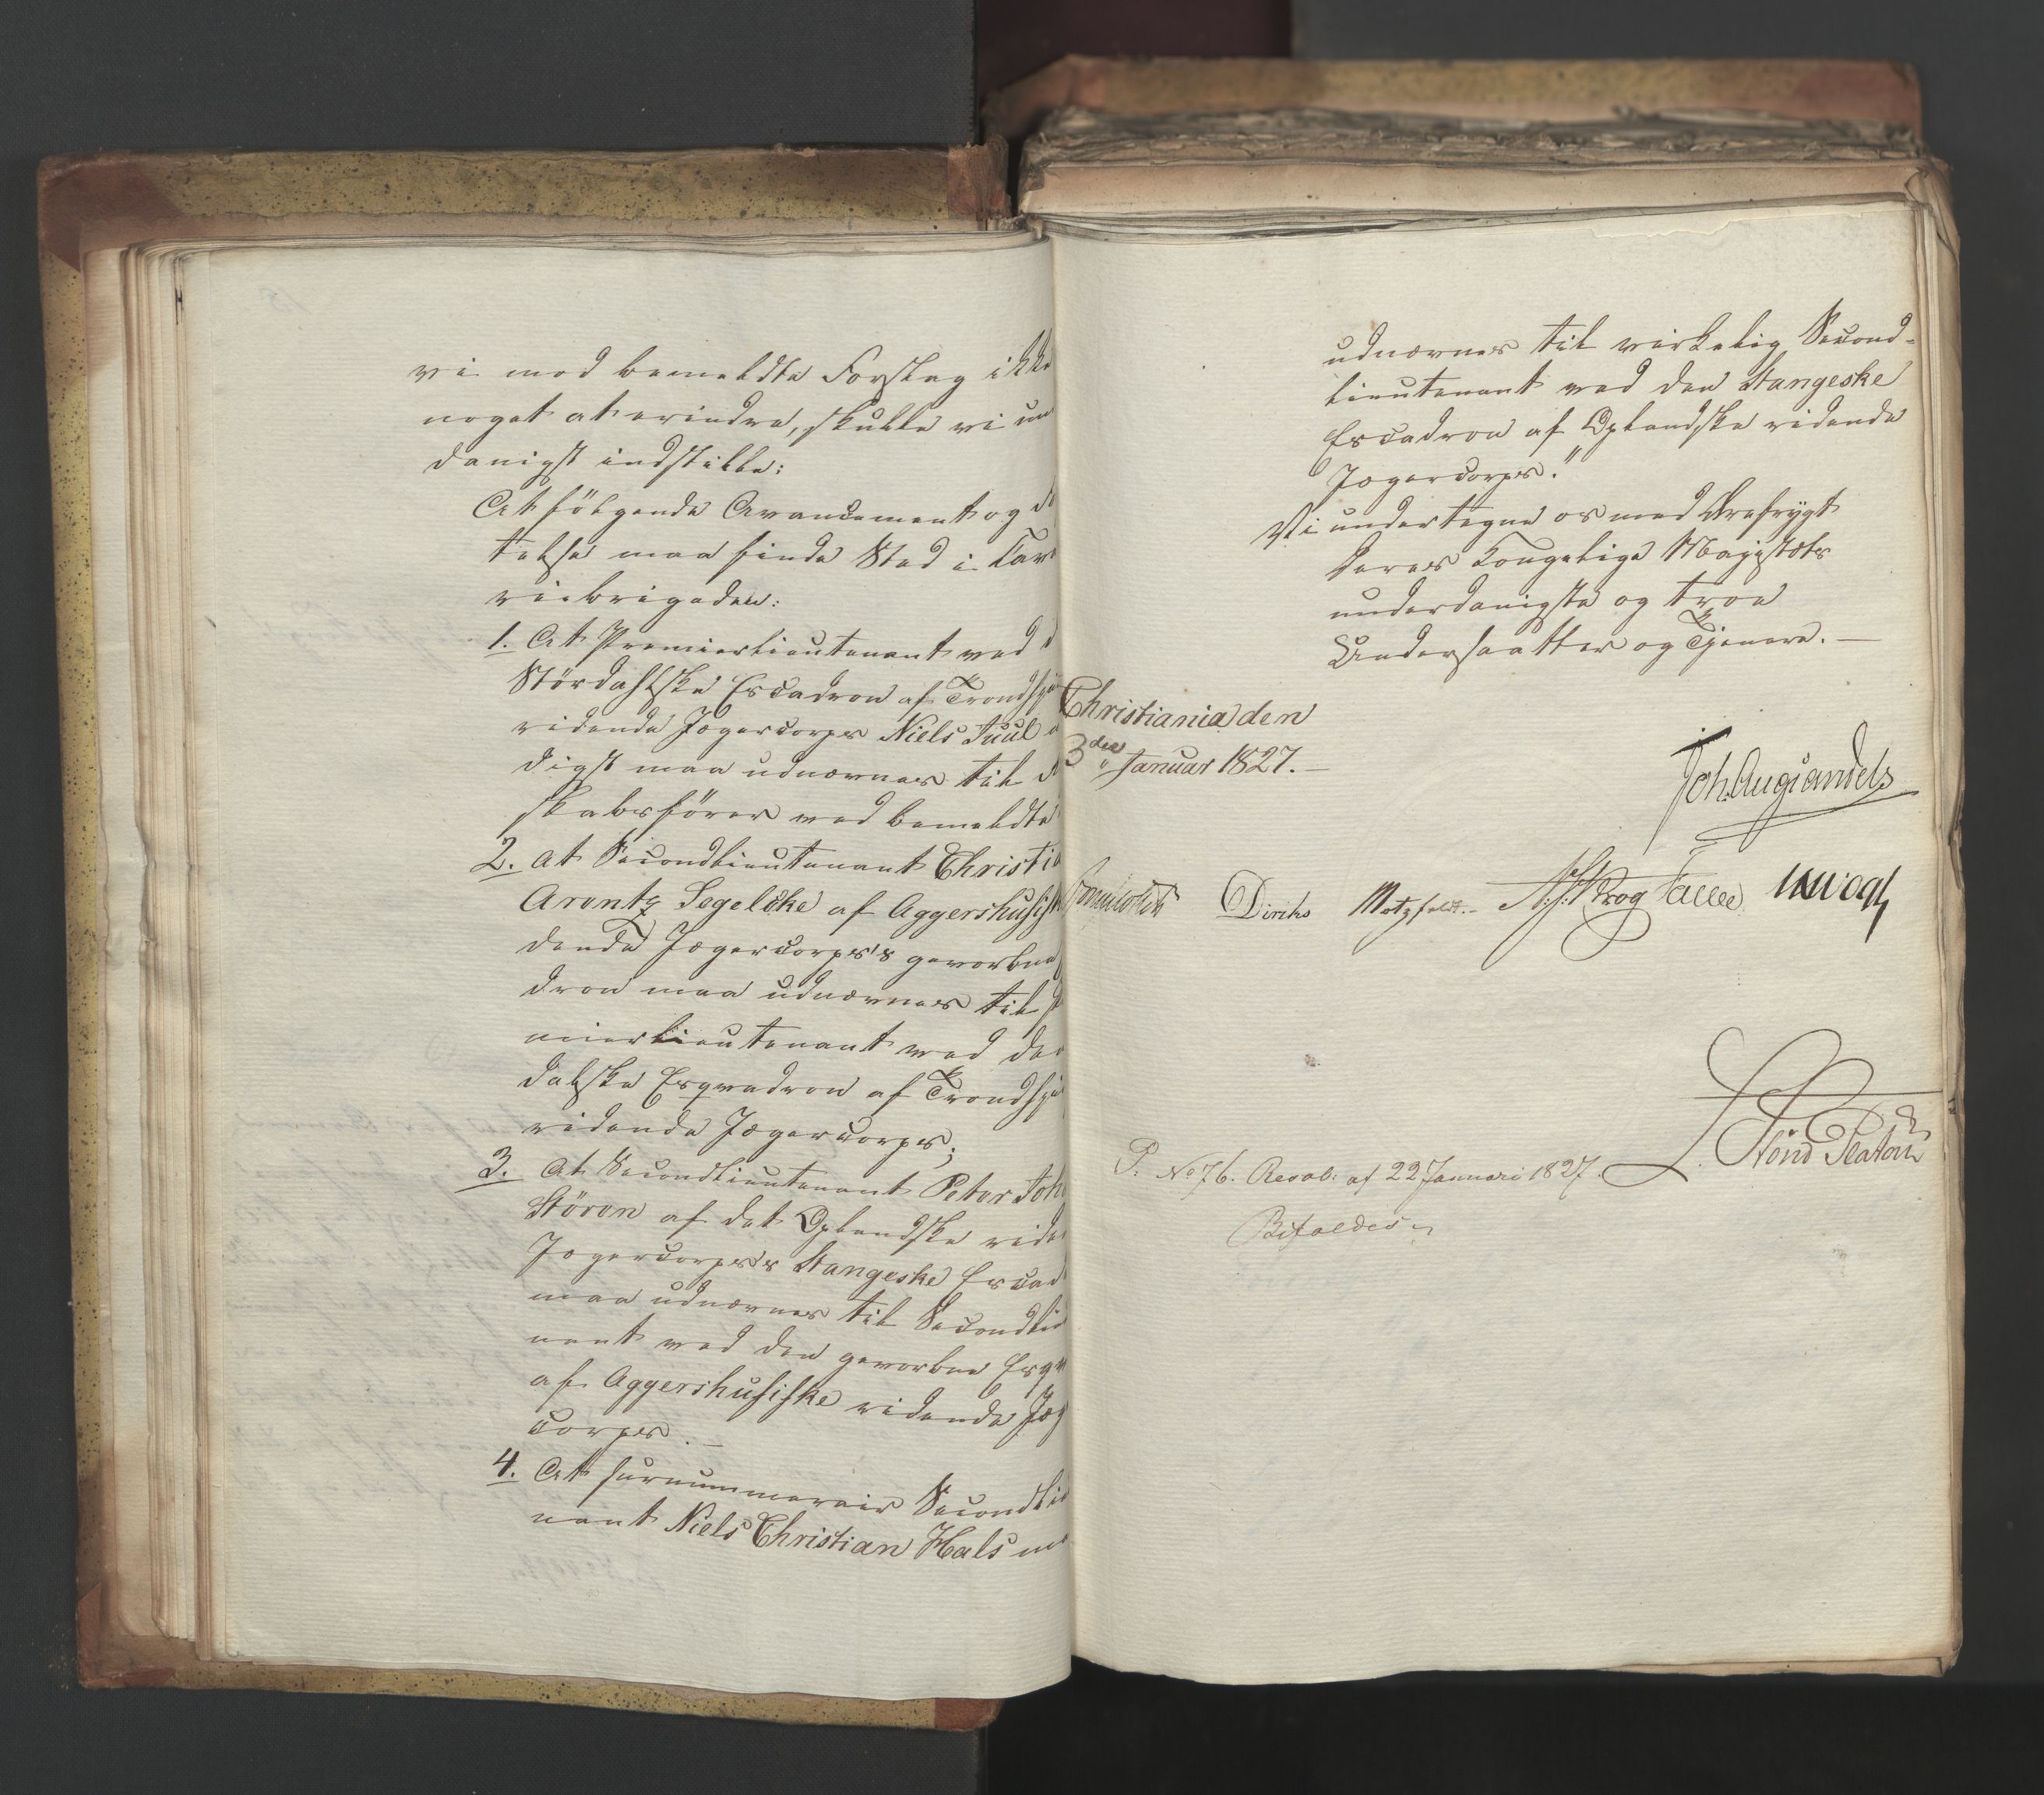 vi mod bemeldte Forslag ikke
noget at erindre, skulle vi un
danigst indstille:
At følgende Avancement og
telse maa finde Sted i Cav
riebrigaden:
1. At Premierlieutenant ved
Stördahlske Escadron af Trondhj
ridende Jægercorps Niels Juul
digst maa udnævnes til
skabsförer ved bemeldte
2. At Secondlieutenant Christi
Arentz Segelcke af Aggershusisk
dende Jægercorps's gevorbne
dron maa udnævnes til
mierlieutenant ved den
dalske Esqvadron af Trondhj
ridende Jægercorps;
3. At Secondlieutenant Peter Joh
Stören af det Oplandske ride
Jægercorps's Stangeske Escad
maa udnævnes til Secondlie
nant ved den gevorbne Esqv
af Aggershusiske ridende Jæg
corps.
4. At surnummerair Secondlie
nant Niels Christian Hals m
udnævnes til virkelig Second-
lieutenant ved den Stangeske
Escadron af Oplandske ridende
Jægercorps."
Vi undertegne os med Ærefrygt
Deres Kongelige Majestæts
underdanigste og troe
Undersaatter og Tjenere. —
Christiania den
3die Januar 1827. —
Joh. Aug: Sandels
Diriks Motzfeldt. N. J. Krog Vogt
P. No 76. Resol: af 22 Januari 1827.
Bifaldes